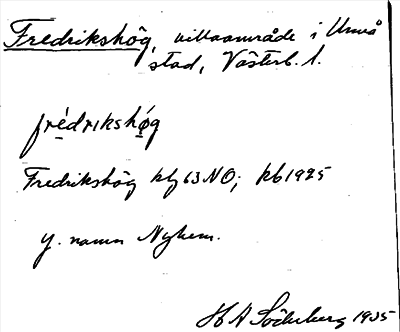 Fredrikshög, villaområde i Umeå
stad, Västerb. l.
fré̱drikshö̱́g
Fredrikshög kbl 63 NO; kb 1925
y. namn Nyhem.
H A Söderberg 1935